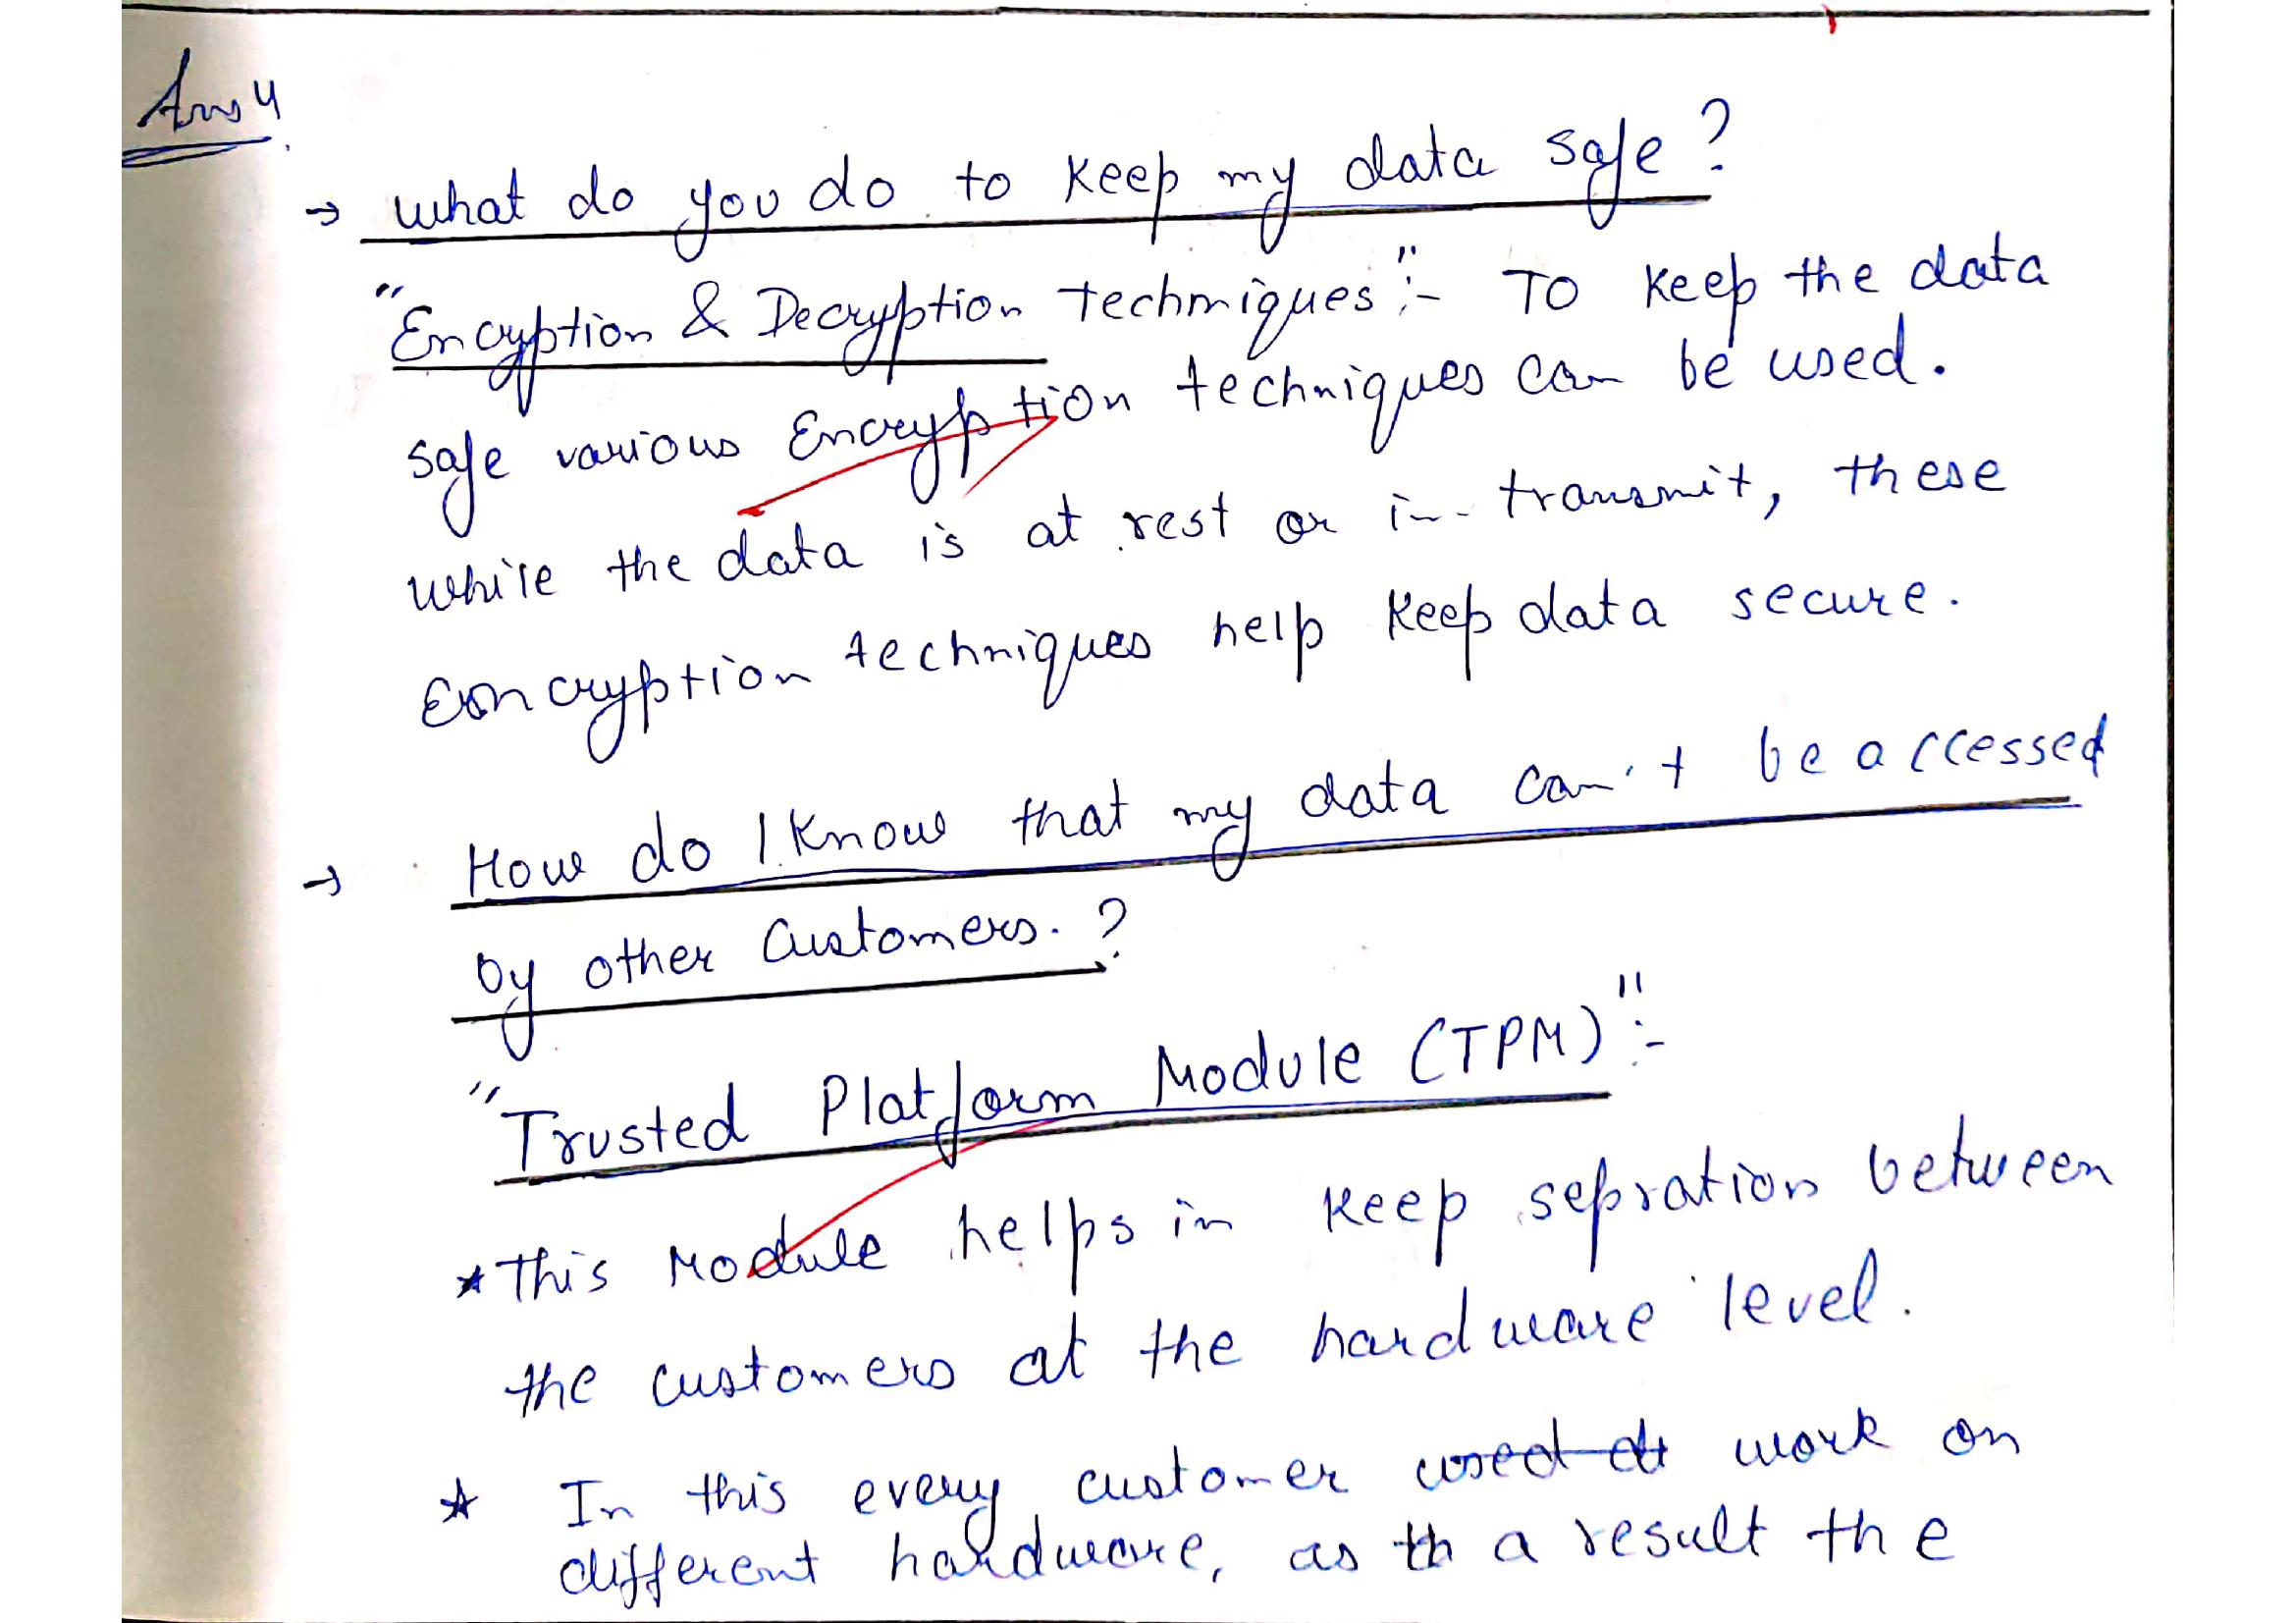 Ans 4
→ what do you do to keep my data safe?
"Encryption & Decryption Techniques":- To keep the data
safe various Encryption techniques can be used.
while the data is at rest or in transmit, these
Encryption techniques help keep data secure.
→ How do I know that my data can't be accessed
by other customers.?
"Trusted Platform Module (TPM)":-
* This Module helps in keep sepration between
the customers at the hardware level.
* In this every customer used at work on
different hardware, as th a result the